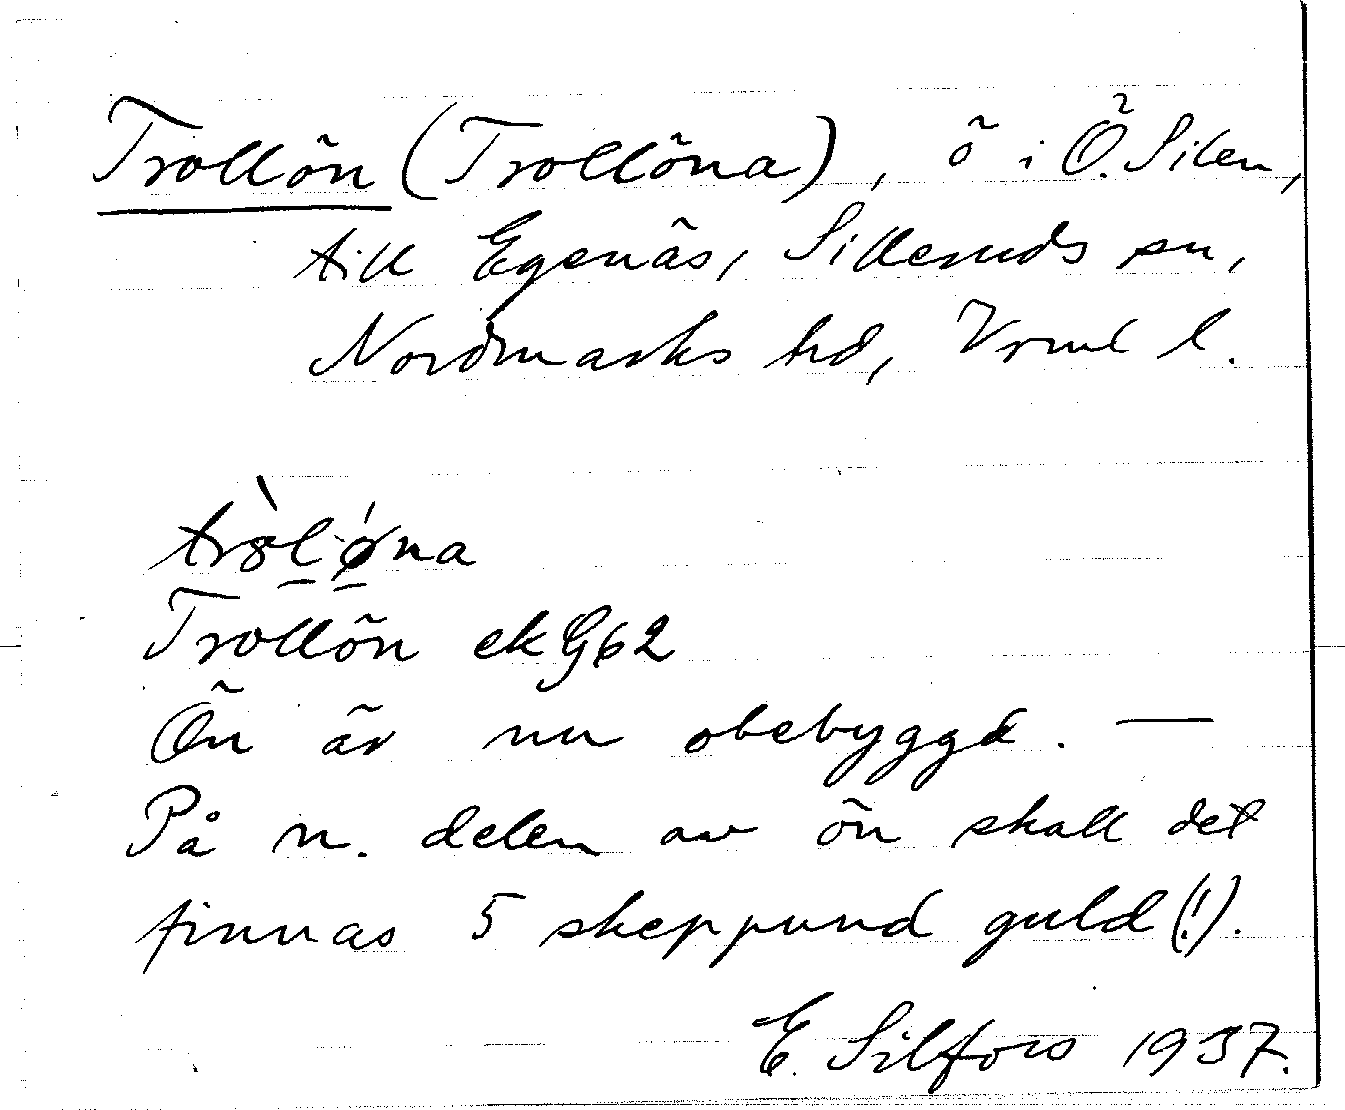 Trollön (Trollöna), ö i Ö. Silen,
till Egenäs, Silleruds sn,
Nordmarks hd, Vrml l.
tròl̠ǿ̠na
Trollön ekG62
Ön är nu obebyggd. —
På n. delen av ön skall det
finnas 5 skeppund guld (!).
E. Silfors 1937.